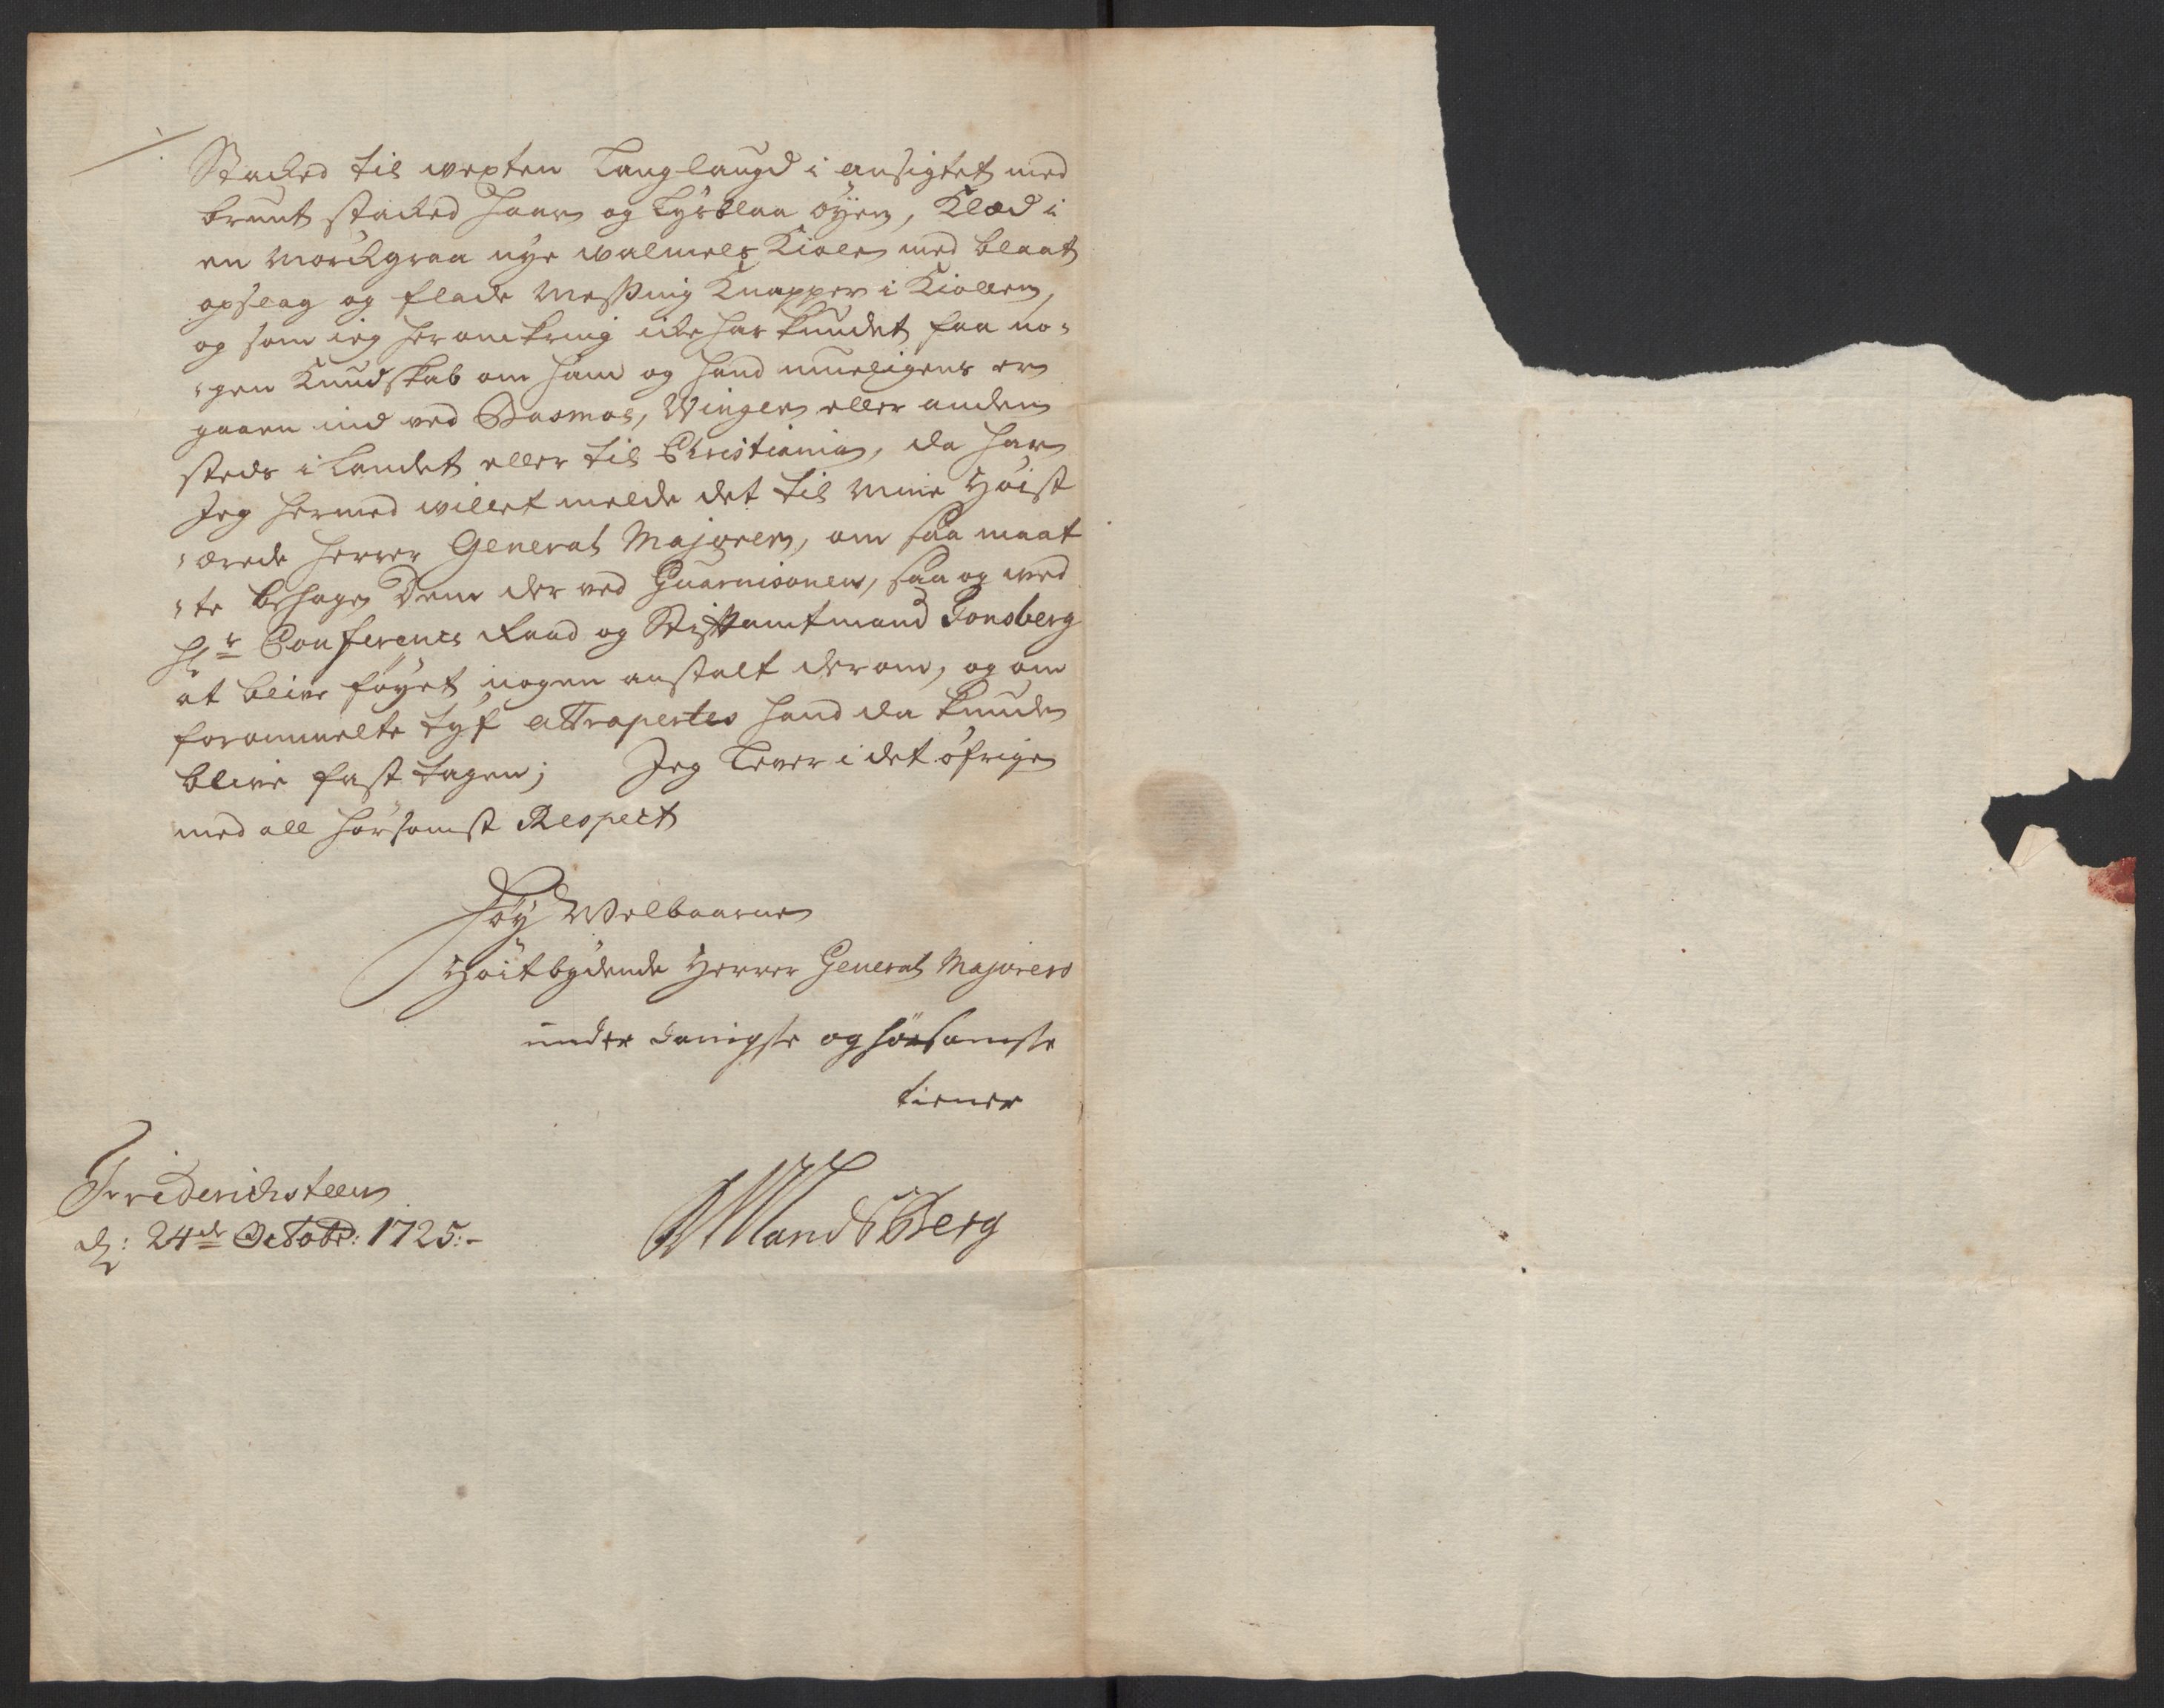 Stacked til wexten Langlaugd i ansigtet med
brunt stacked haar og Lysblaa øyen, Klæd i
en Mørckgraa nye walmels Kiole med blaat
opslag og flade Messing Knapper i Kiollen,
og som ieg heromkring icke har kundet faa no-
-gen Kundskab om ham og hand mueligens er
gaaen ind ved Basmoe, Winger eller anden
steds i Landet eller til Christiania, da har
Jeg hermed willet melde det til Min Høist
-ærede Herrer General Majoren, om saa maat
-te behage Dem der ved Guarnisonen, saa og wed
Hr Conferencs Raad og Stiftamtmand Tonsberg
at blive føyet nogen anstalt derom, og om
forommelte tyf attrapertes hand da kunde
blive fast tagen; Jeg Lever i det øfrige
med all hørsomst Respect
Høy Welbaarne
Høitbydende Herrer General Majorens
under danigste og hørsomste
tiener
Friderichsteen
d: 24de Octobr: 1725:-
Landsberg